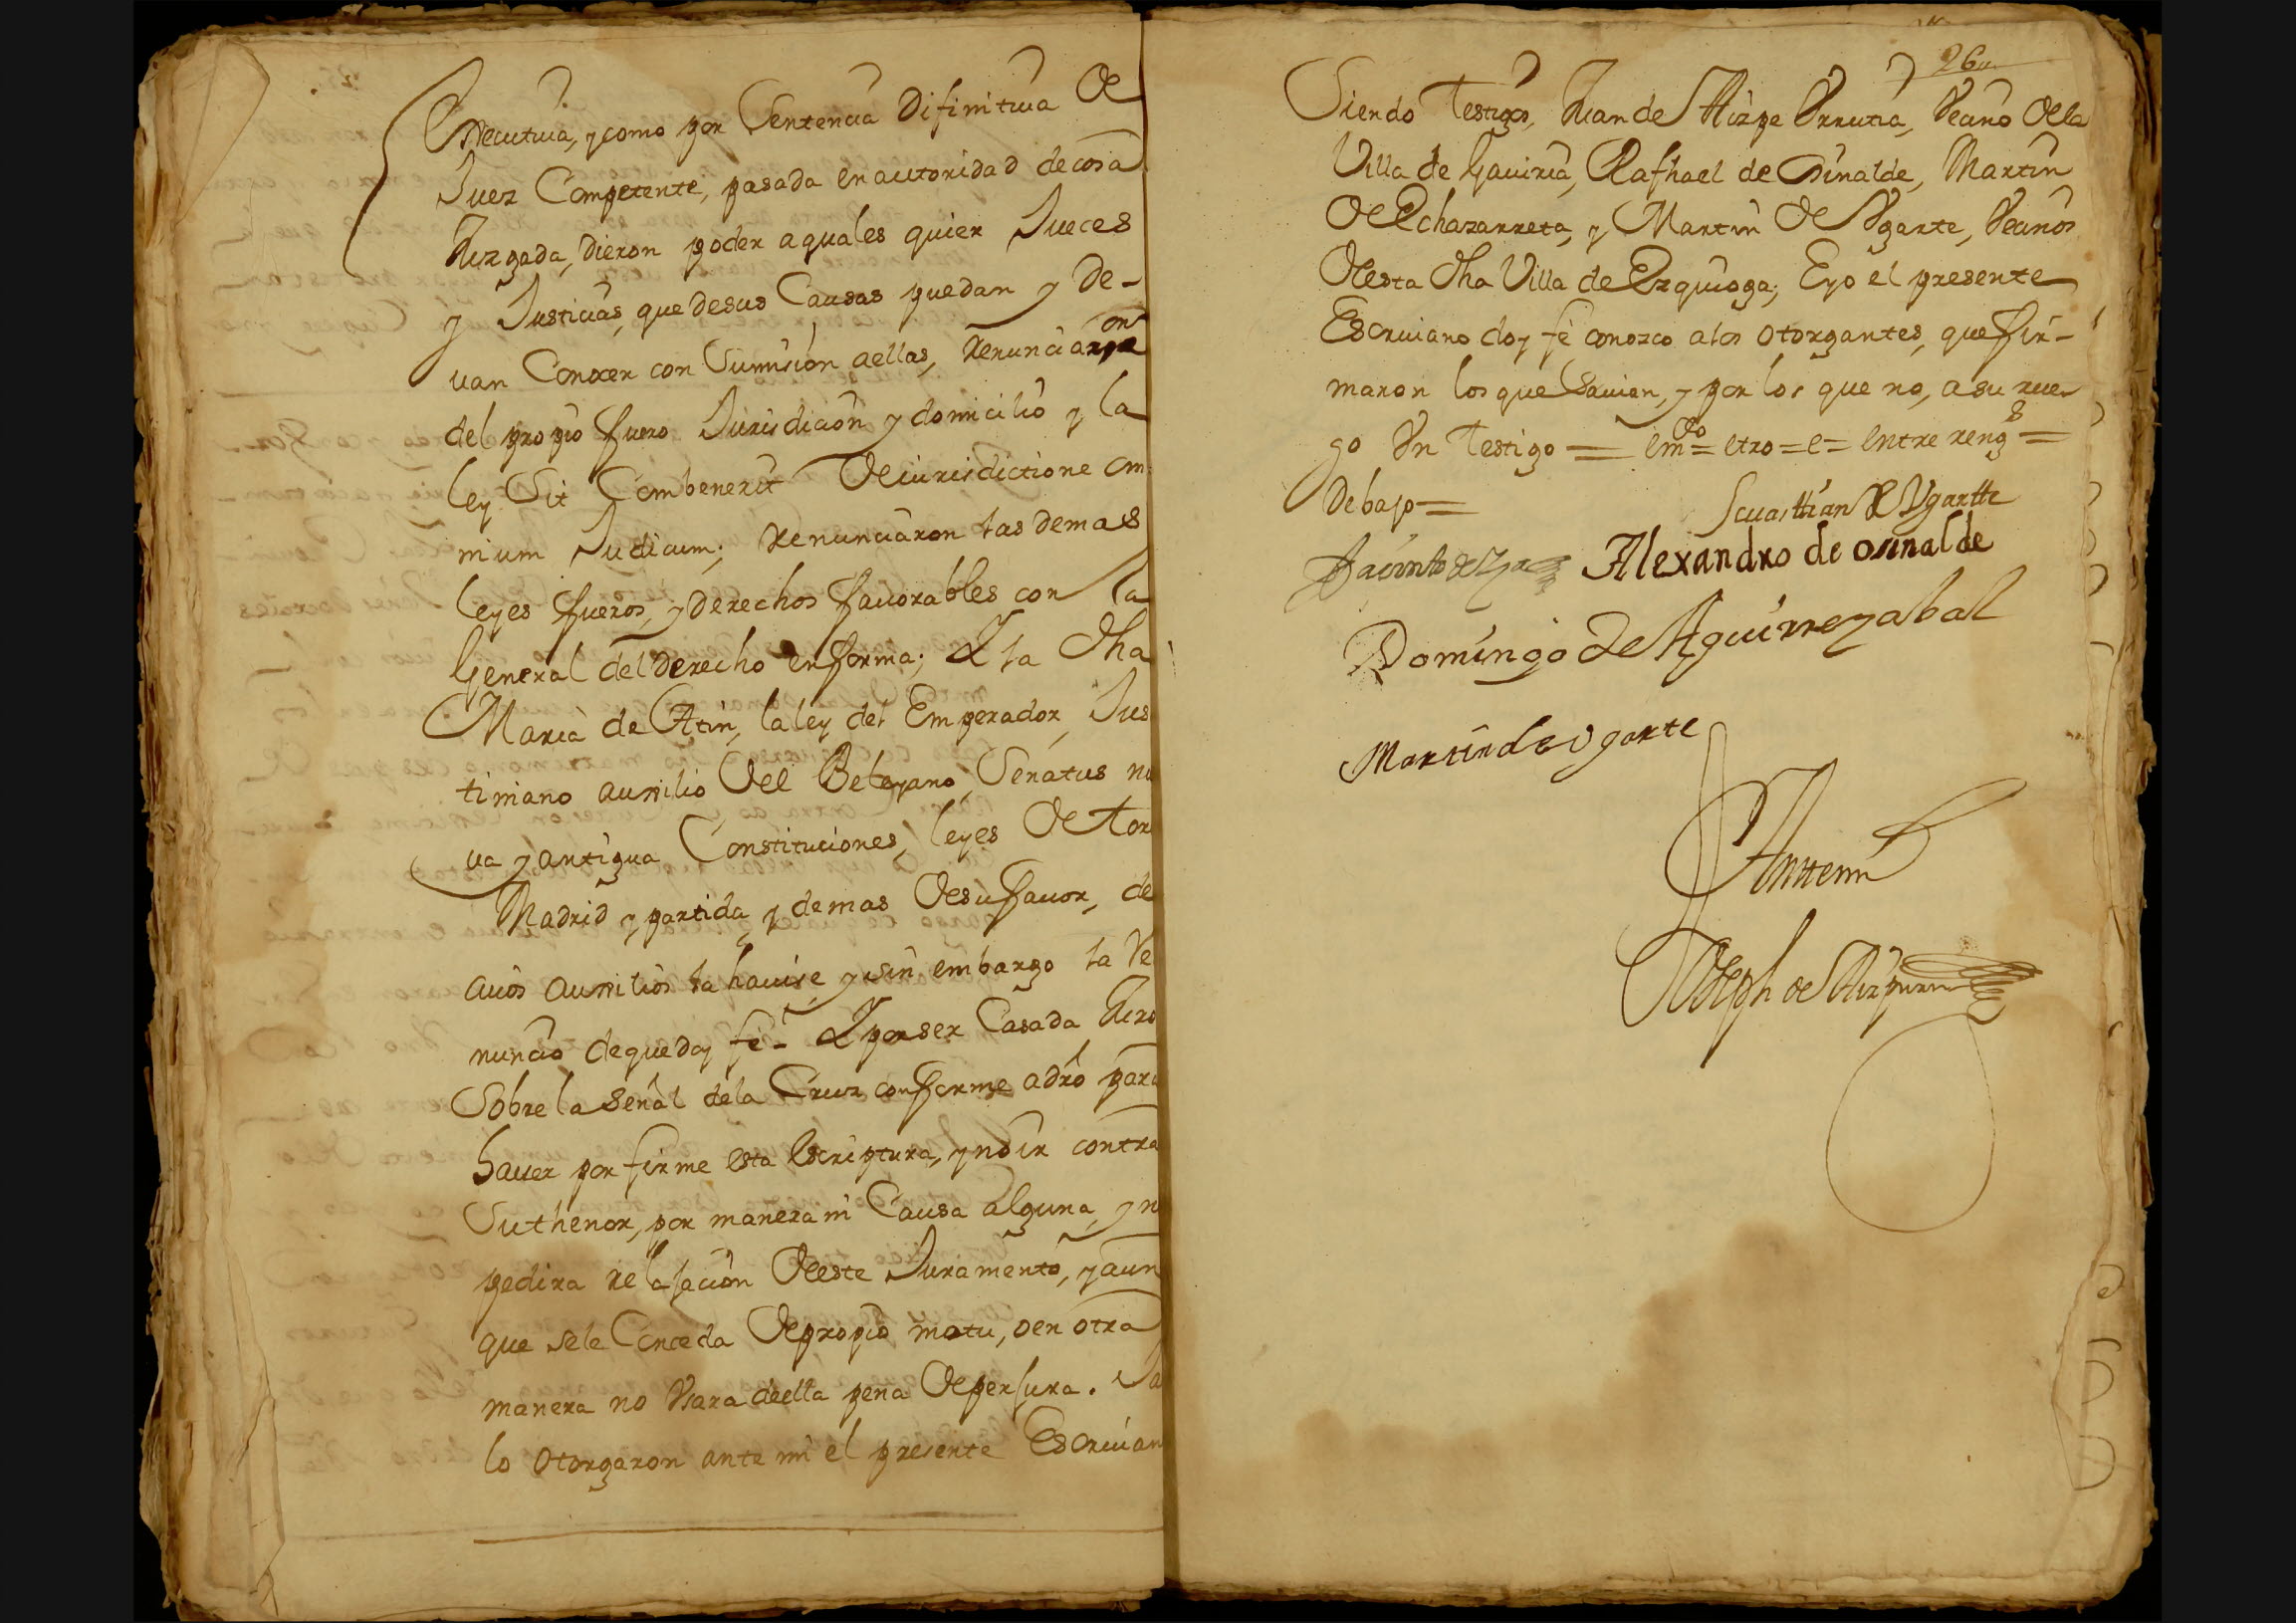 Executiva, y como por Sentencia Difinitiva de
Juez Competente, pasada en autoridad de cosa
Juzgada, Dieron poder a quales quier Jueces
y Justicias, que de sus Causas puedan y De-
van Conozer con Sumision a ellas, renunciaron
del propio fuero Jurisdicion y domicilio y la
ley Sit Combenerit De iurisdictione om
nium Judicum; renunciaron las demas
leyes fueros, y derechos favorables con la
General del derecho en forma; Y la dha
Maria de Atin, la ley del Emperador, Jus
tiniano auxilio del Beleyano, Senatus nu
va y antigua Constituciones, leyes de Tor
Madrid y partida, y demas de su favor, de
cuios auxilios la havise, y sin embargo la Re
nuncio de que doy fe- Y por ser Casada Juro
Sobre la señal de la Cruz conforme a dro para
haver por firme esta escriptura, y no ir contra
Su thenor, por manera ni Causa alguna, y n
pedira relajacion de este Juramento, y aun
que se le Conceda de propio motu, o en otra
manera no Vsara de ella pena de perjura. Ja
lo otorgaron ante mi el presente Escrivan
26
Siendo Testigos, Juan de Aizpe Vrrutia, Vecino de la
Villa de Gaviria, Raphael de Osinalde, Martin
de Echazarreta, y Martin de Vgarte, Vecinos
de esta dha Villa de Ezquioga; E yo el presente
Escrivano doy fe conozco a los otorgantes, que fir-
maron los que savian, y por los que no, a su rue-
go Vn Testigo = emdo = etro = e = entre rengs =
Debajo =
Sevasttian de Vgartte
Jacinto de
Alexandro de osinalde
Domingo de Aguirrezabal
Martin de Vgarte
Antte mi
Joseph de Aizpuru